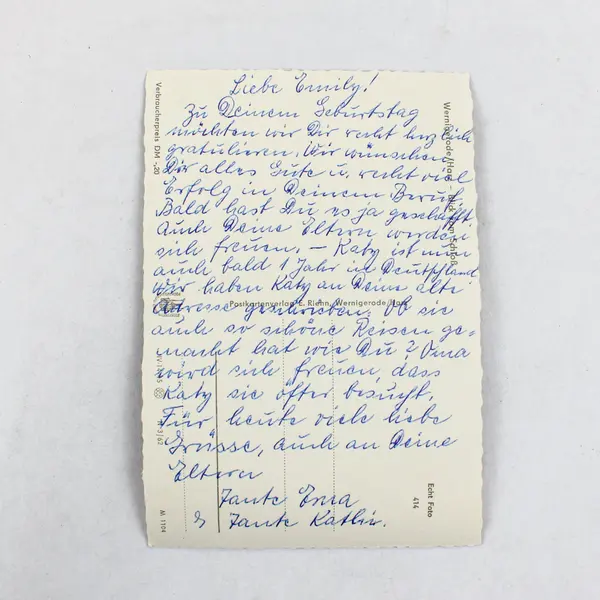 Liebe Emily!
Zu Deinem Geburtstag
möchten wir Dir recht herzlich
gratulieren. Wir wünschen
Dir alles Gute u. recht viel
Erfolg in Deinem Beruf.
Bald hast Du es ja geschafft
Auch Deine Eltern werden
sich freuen. – Katy ist nun
auch bald 1 Jahr in Deutschland
Wir haben Katy an Deine alte
Adresse geschrieben. Ob sie
auch so schöne Reisen ge-
macht hat wie Du? Oma
wird sich freuen, dass
Katy sie öfter besucht.
Für heute viele liebe
Grüsse, auch an Deine
Eltern
Tante Erna
Tante Kathi.
Verbraucherpreis DM -.20
Wernigerode/Harz
Blick zum Schloß
Postkartenverlag E. Riehn, Wernigerode/Harz
Echt Foto
414
M 1104